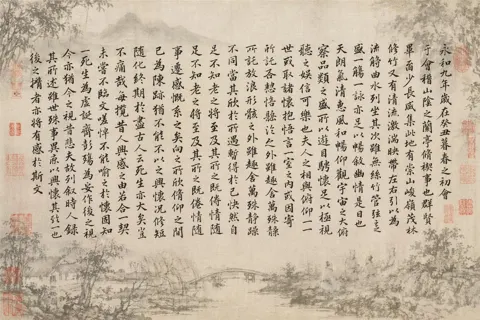 永和九年歲在癸丑暮春之初會
于會稽山陰之蘭亭脩稧事也群賢
畢少長咸集此地有崇山峻嶺茂林
修竹又有清流激湍映帶左右引以為
流觴曲水列坐其次雖無絲竹管弦之
盛一觴一詠亦足以暢敘幽情是日也
天朗氣清惠風和暢仰觀宇宙之大俯
察品類之盛所以遊目騁懷足以極視
聽之娛信可樂也夫人之相與俯仰一
世或取諸懷抱悟言一室之內或因寄
所託之外雖趣舍萬殊靜
所託放浪形骸之外雖趣舍萬殊靜躁
不同當其欣於所遇暫得於己快然自
足不知老之將至及其所之既倦情隨
足不知老之將至及其所之既倦情隨
事遷感慨系之矣向之所欣俯仰之間
已為陳跡猶不能不以之興懷況修短
隨化終期於盡古人云死生亦大矣豈
不痛哉每攬昔人興感之由若合一契
未嘗不臨文嗟悼不能喻之於懷固知
一死生為虛誕齊彭殤為妄作後之視
今亦猶今之視昔悲夫故列敘時人錄
其所述雖世殊事異所以興懷其致一也
後之攬者亦將有感於斯文